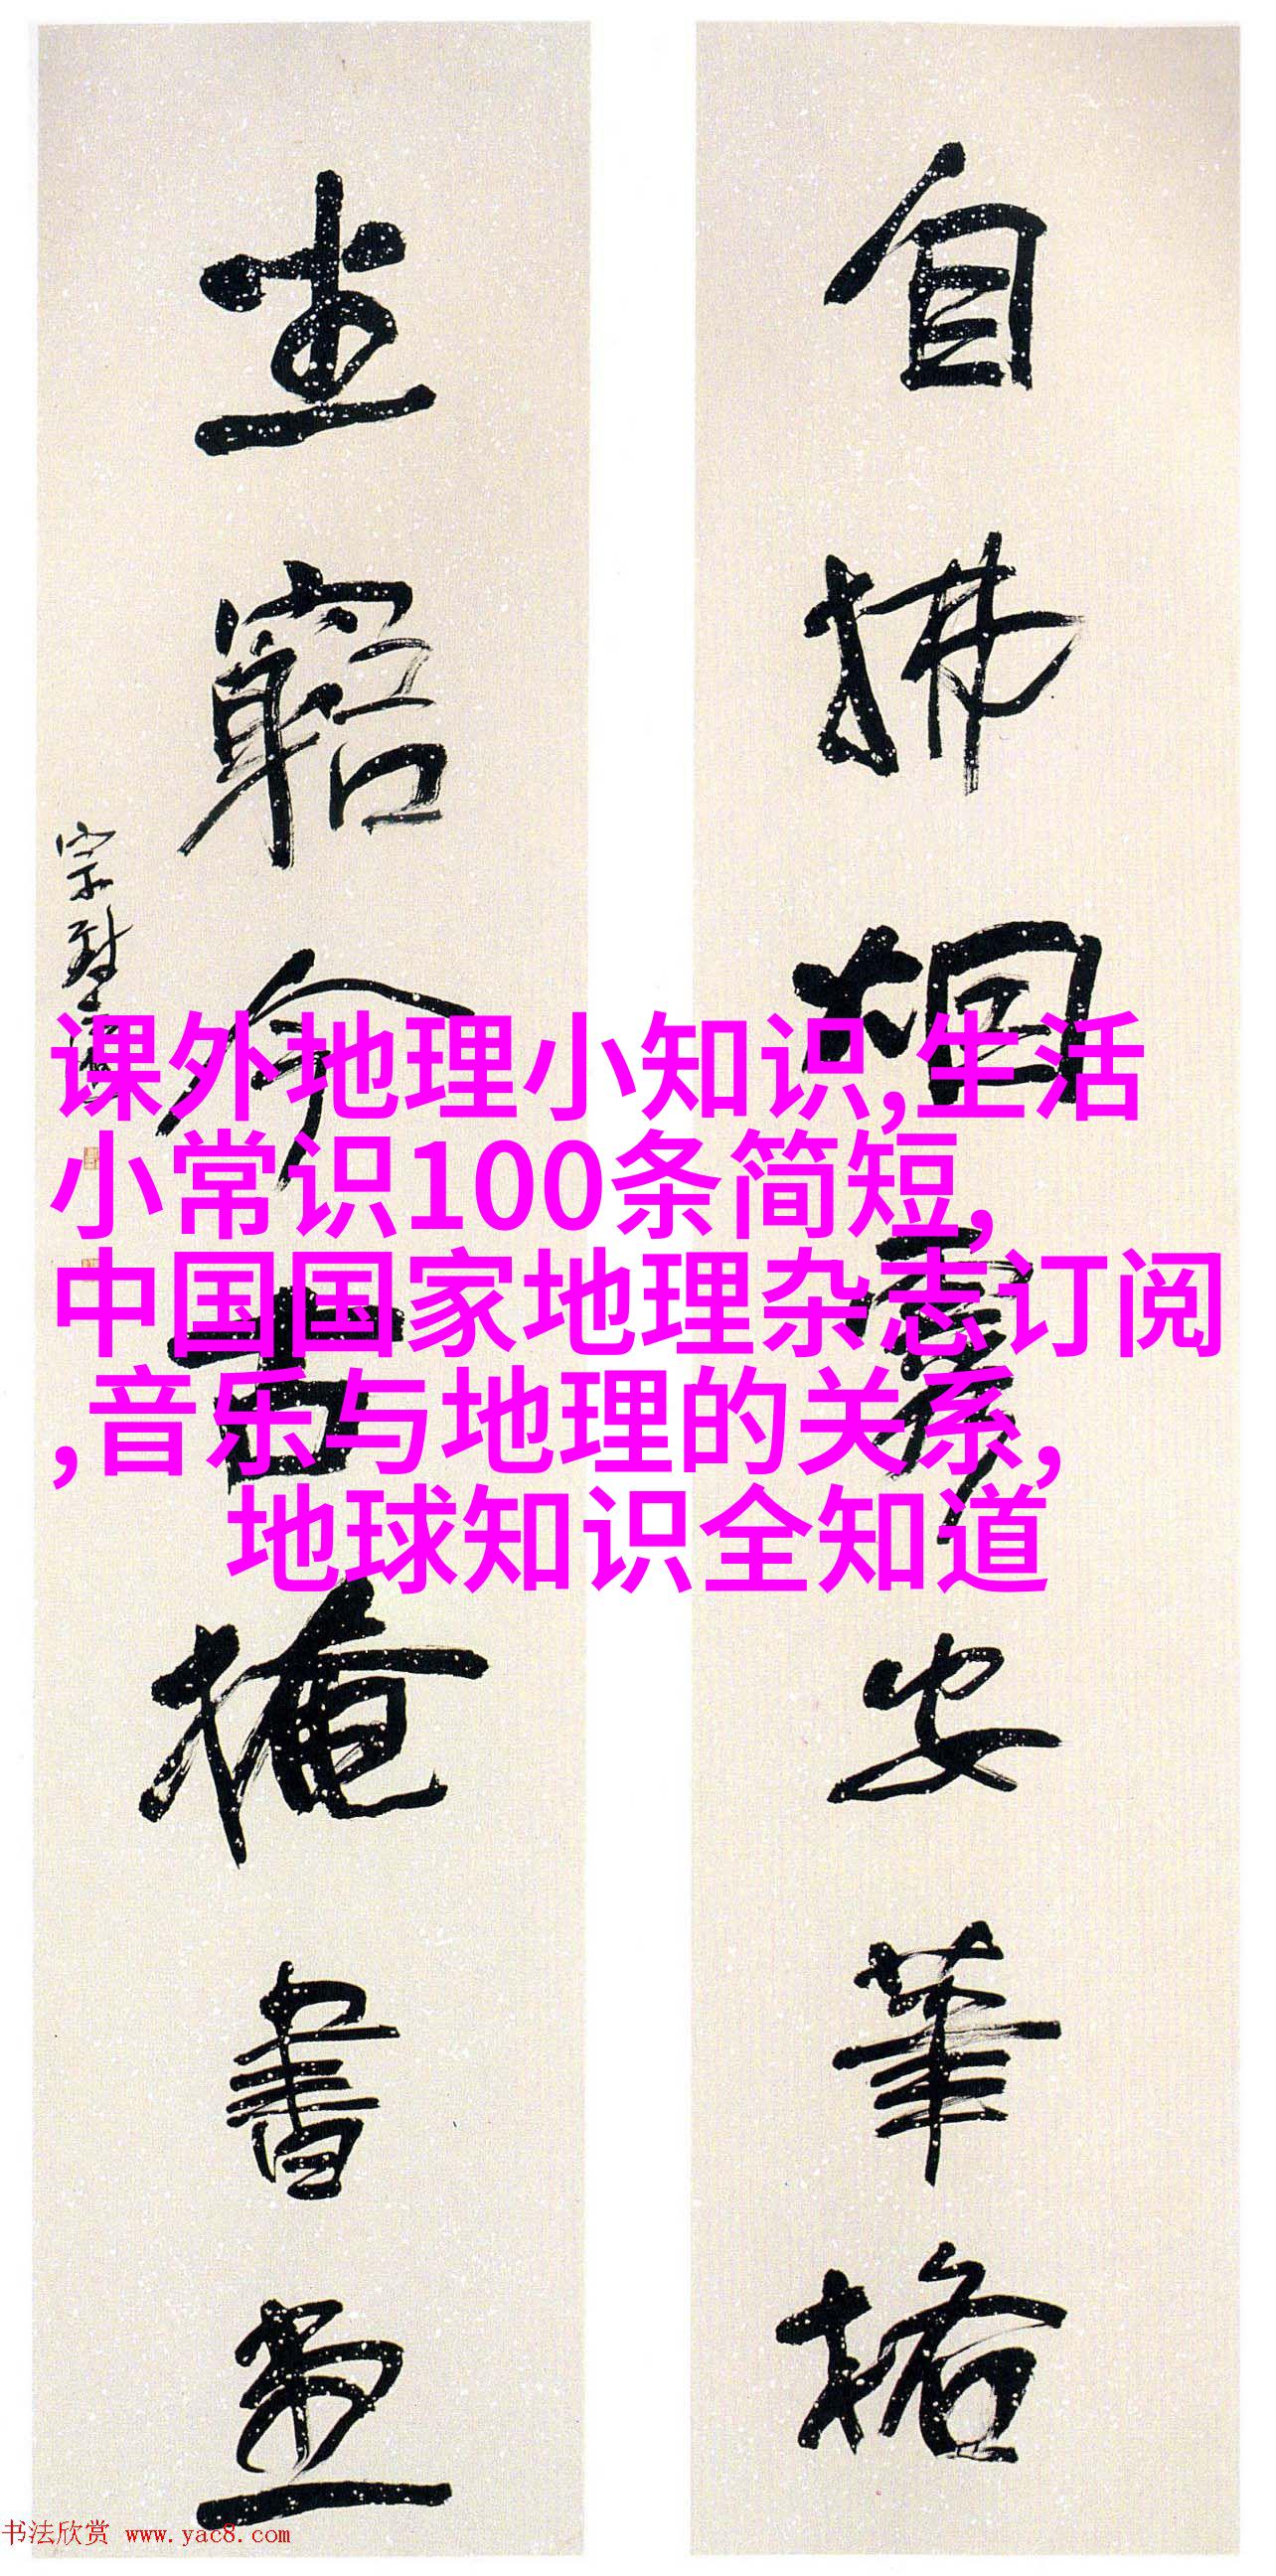 自拂烟霭安筆格
坐窮今古掩書堂
课外地理小知识,生活
小常识100条简短,
中国国家地理杂志订阅
,音乐与地理的关系,
地球知识全知道
书法欣赏 www.yac8.com